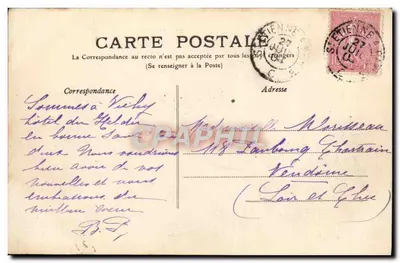 CARTE POSTALE
La Correspondance au recto n'est pas acceptée par tous les pays étrangers
(Se renseigner à la Poste)
Correspondance
Adresse
Sommes à Vichy
hôtel du Helder
en bonne santé
deux Nous voudrions
bien avoir de vos
nouvelles et vous
embrassons du
meilleur coeur
B.P.
Mademoiselle Morisseau
118 Faubourg Chartrain
Vendôme
(Loir et Cher)
ST ETIENNE
27
JUIL
ST ETIENNE
27
CPARAMA